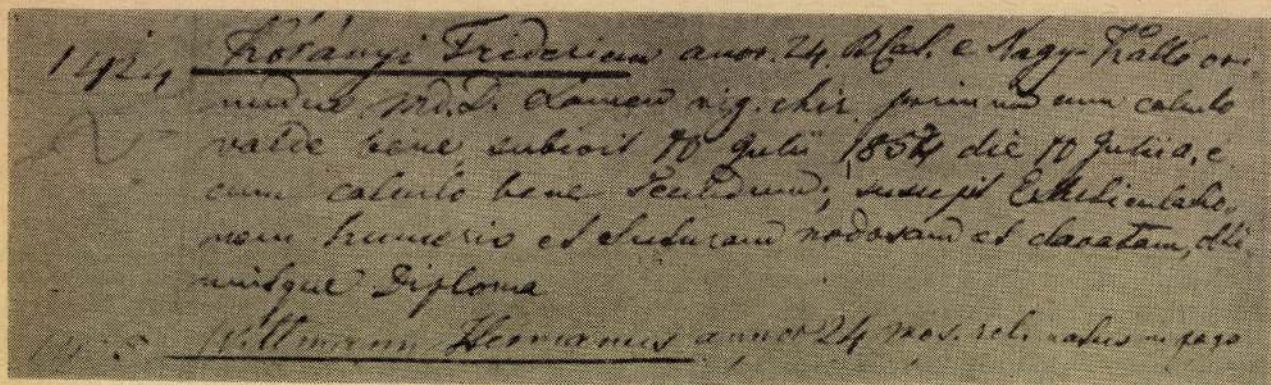 1424 Korányi Fridericus annor. 24. R.Cat. e Nagy-Kálló ori
undus, Md. D. Examen rig. chir. primum cum calculo
valde bene, subivit 10 Julii 1854 die 10 Julii a. c.
cum calculo bene Secundum; suscepit Exarticulatio
nem humeris et Suturam nodosam et clavatam, obti
nuitque Diploma
Wittmann Hermanus annor 24 mos. rel. natus in pago